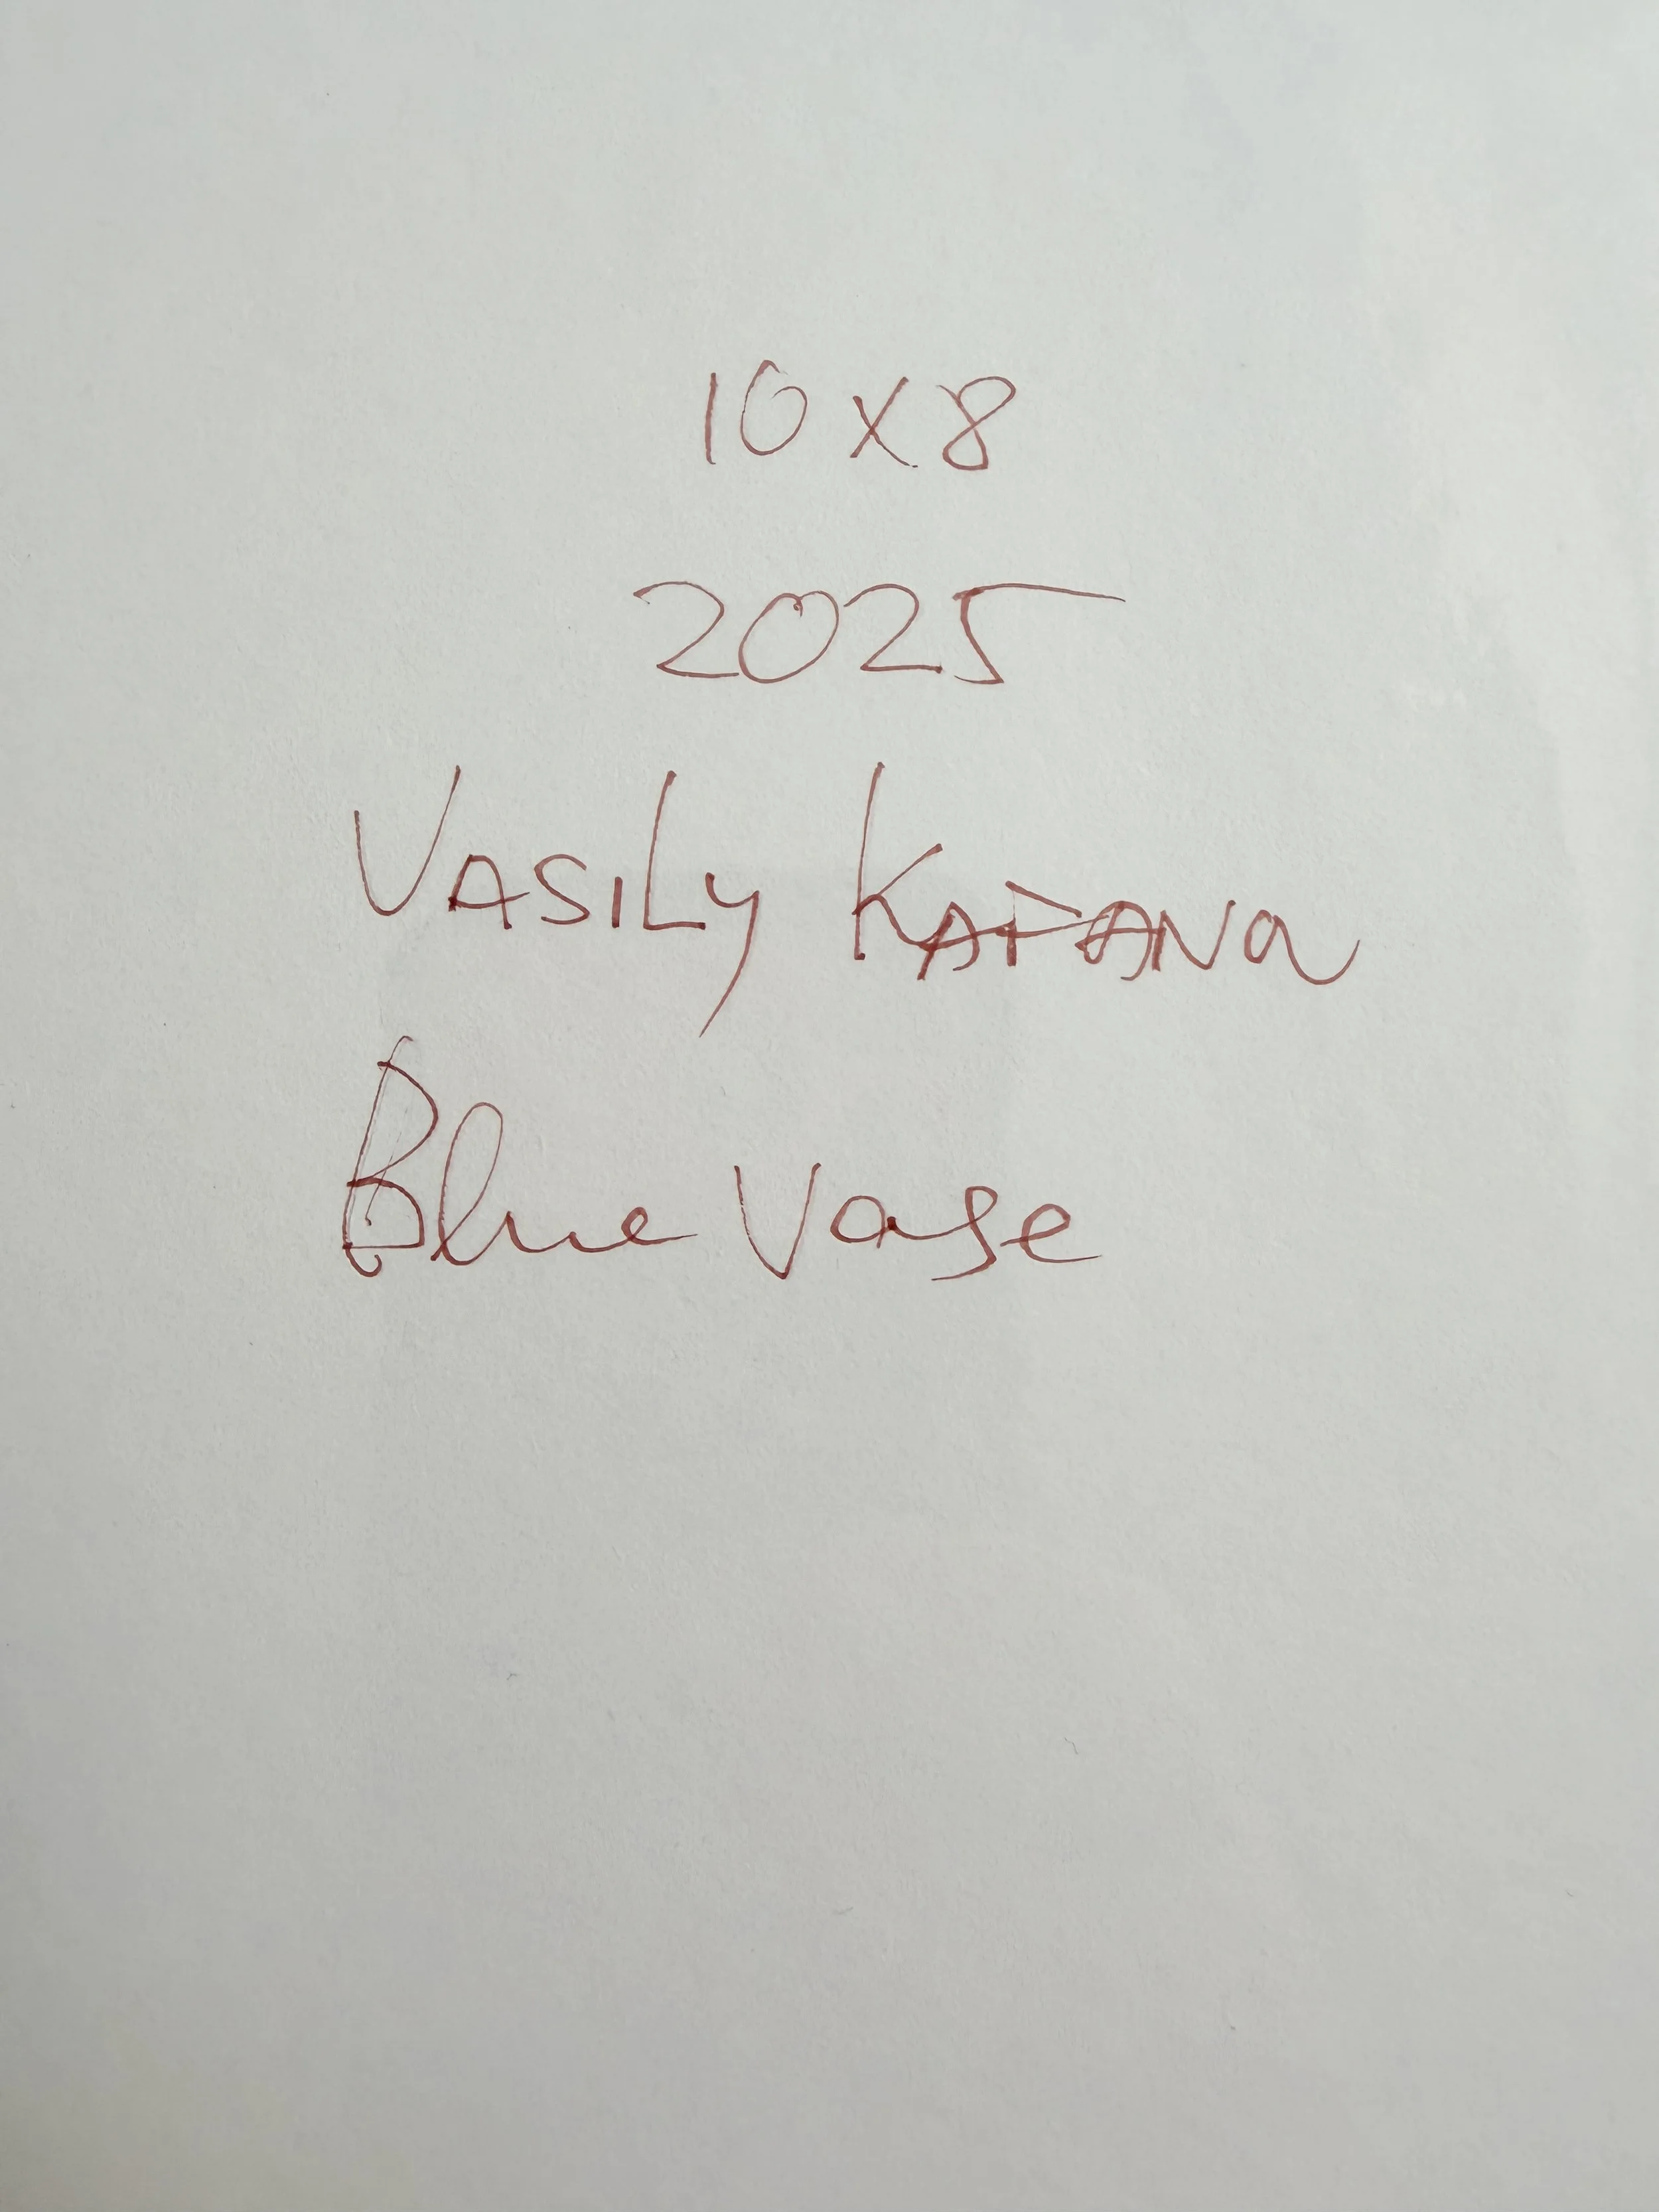 10 x 8
2025
VASILY KAFANA
Blue Vase